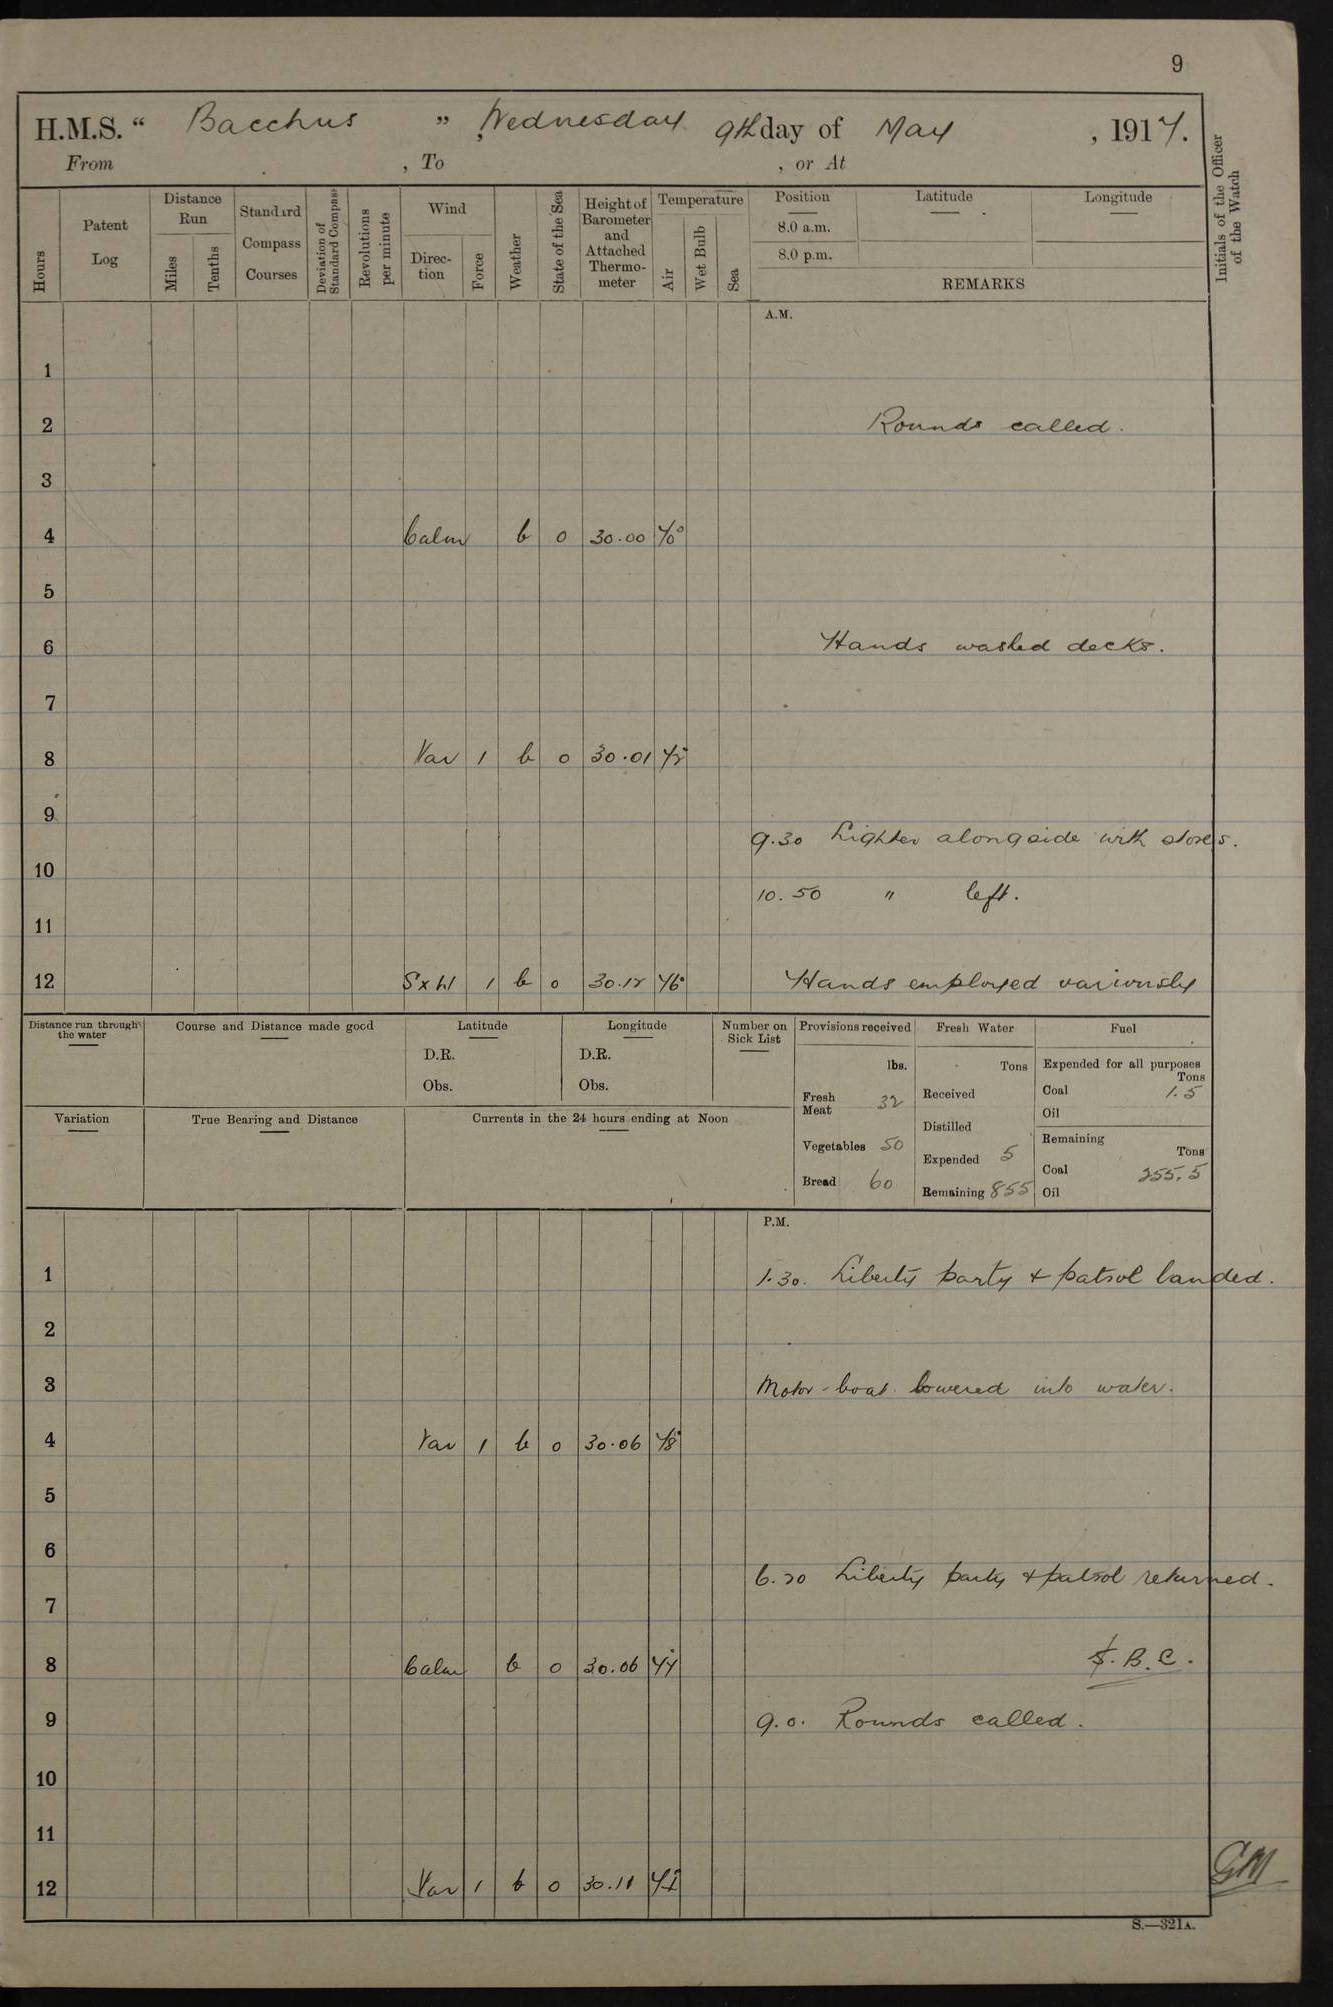 9
H.M.S. “ Bacchus ” , Wednesday 9th day of May , 1917.
From , To , or At
Hours
Patent Log
Distance Run
Miles
Tenths
Standard Compass Courses
Deviation of Standard Compass
Revolutions per minute
Wind
Direction
Force
Weather
State of the Sea
Height of Barometer and Attached Thermometer
Temperature
Air
Wet Bulb
Sea
Position
8.0 a.m.
8.0 p.m.
Latitude
Longitude
REMARKS
Initials of the Officer of the Watch
A.M.
1
2 Rounds called.
3
4 Calm b 0 30.00 70°
5
6 Hands washed decks.
7
8 Var 1 b 0 30.01 72°
9
9.30 Lighter alongside with stores.
10
10.50 " left.
11
12 SxW 1 b 0 30.12 76° Hands employed variously
Distance run through the water
Course and Distance made good
Latitude
D.R.
Obs.
Longitude
D.R.
Obs.
Number on Sick List
Provisions received
lbs.
Fresh Meat 32
Vegetables 50
Bread 60
Fresh Water
Tons
Received
Distilled
Expended 5
Remaining 855
Fuel
Expended for all purposes
Tons
Coal 1.5
Oil
Remaining
Tons
Coal 255.5
Oil
Variation
True Bearing and Distance
Currents in the 24 hours ending at Noon
P.M.
1 1.30. Liberty party & patrol landed.
2
3 Motor-boat lowered into water.
4 Var 1 b 0 30.06 78°
5
6
6.20 Liberty party & patrol returned.
7
8 Calm b 0 30.06 77° B.C.
9 9.0. Rounds called.
10
11
12 Var 1 b 0 30.11 GM
S.—321A.